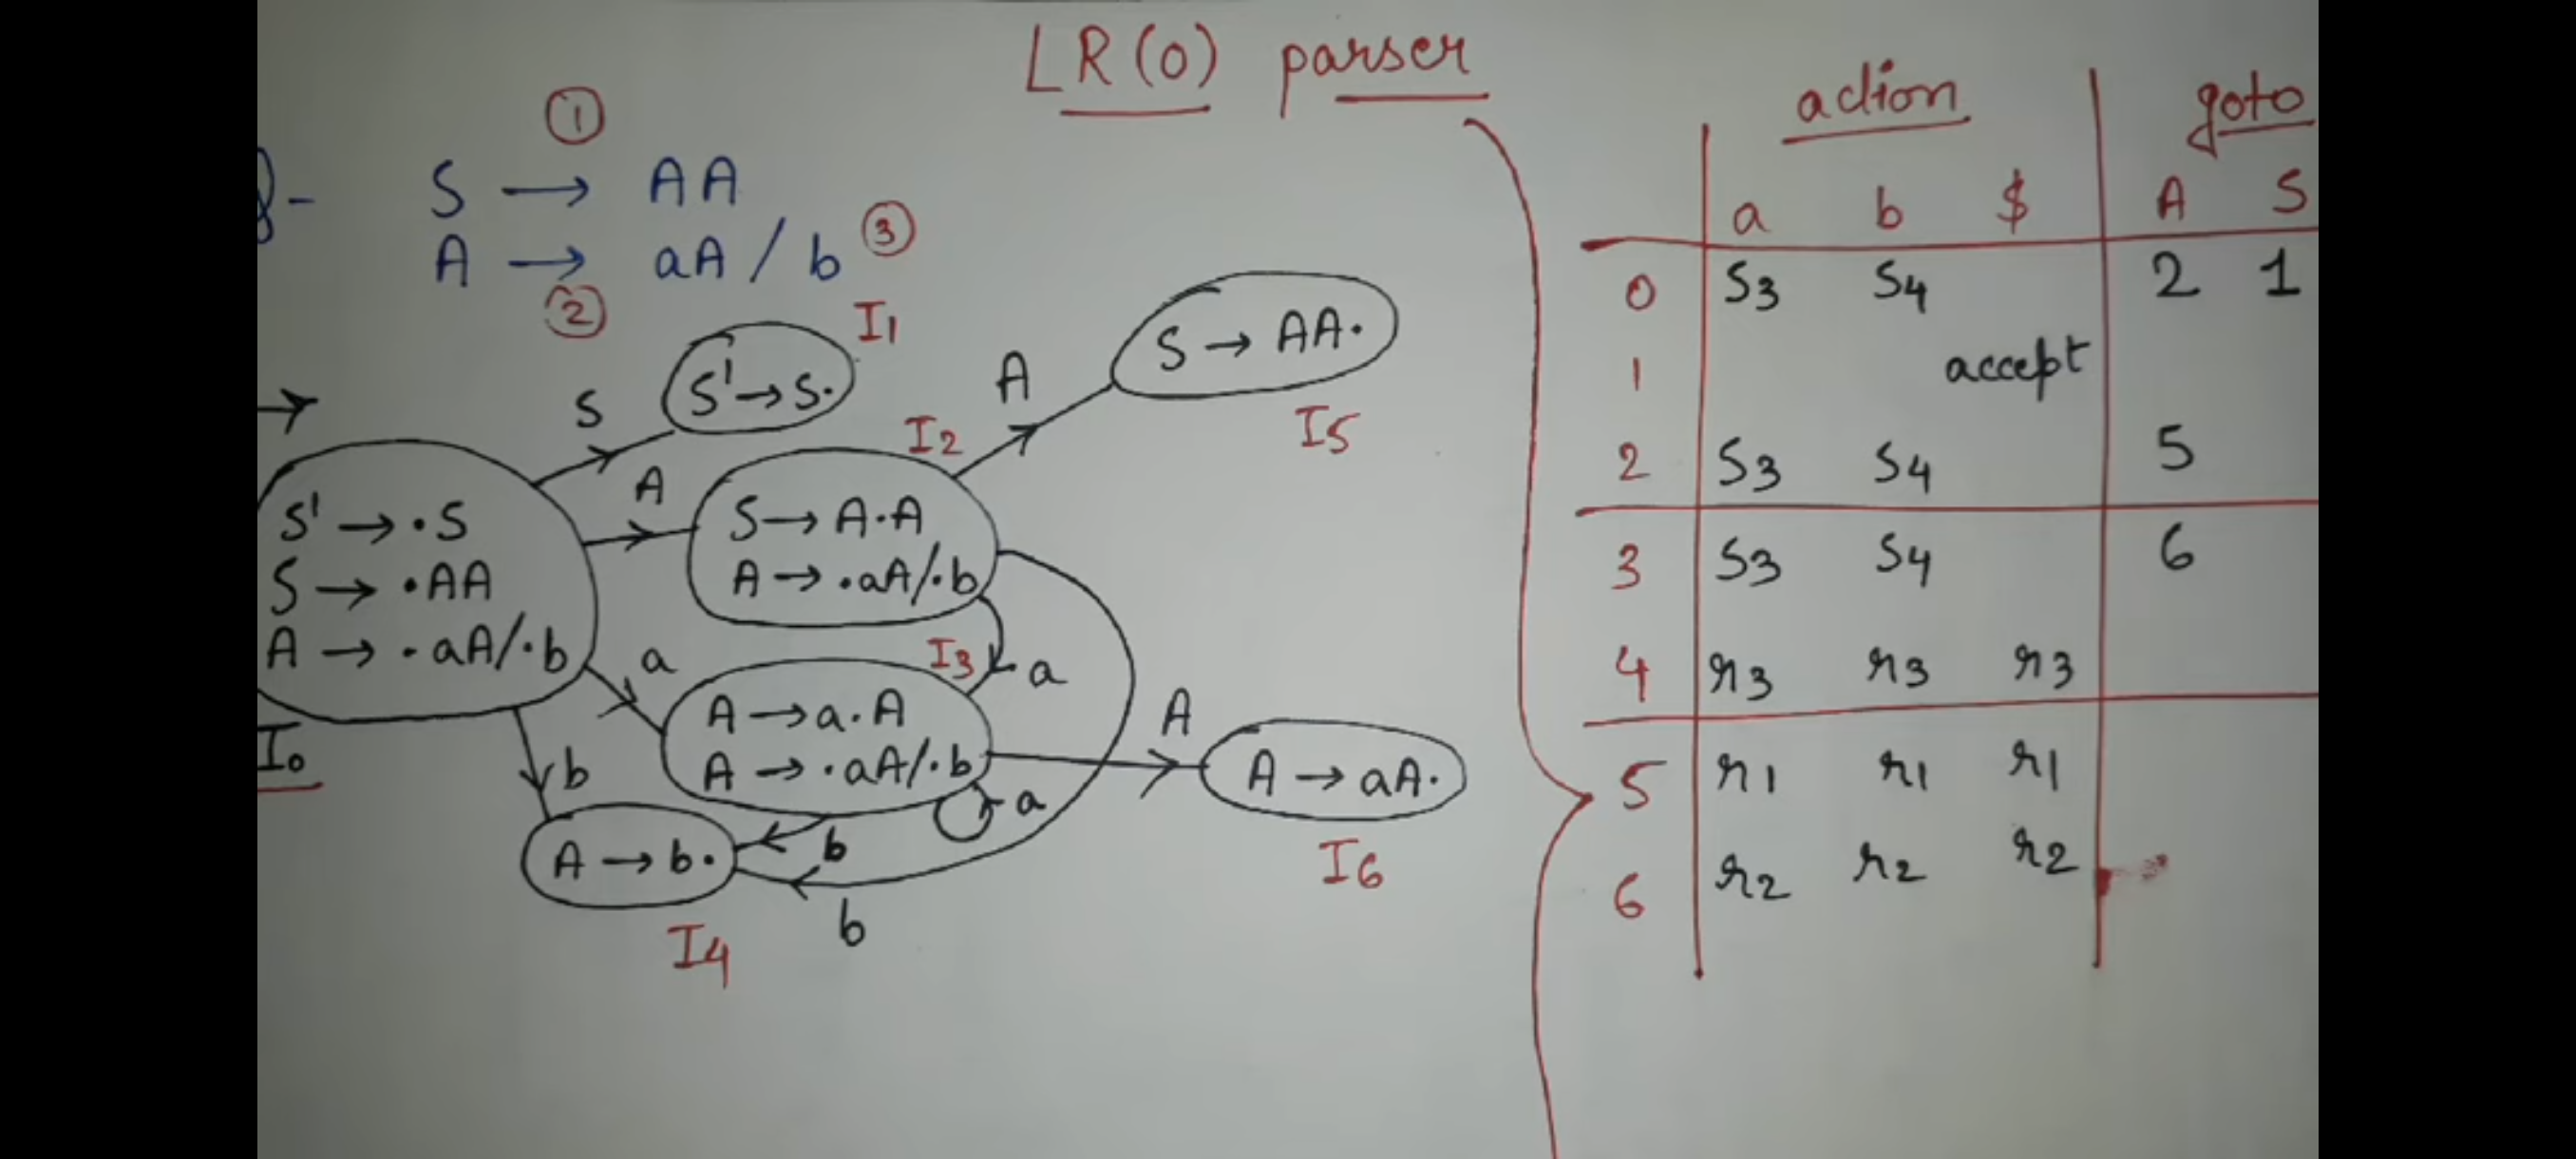 LR(0) parser
①
S → AA
A → aA / b ③
②
I1
S' → S.
S
A
S → AA.
I5
I2
A
S → A.A
A → .aA/.b
S' → .S
S → .AA
A → .aA/.b
I0
a
I3
a
A → a.A
A → .aA/.b
a
A
A → aA.
I6
b
b
A → b.
b
I4
action goto
a b $ A S
0 S3 S4 2 1
1 accept
2 S3 S4 5
3 S3 S4 6
4 r3 r3 r3
5 r1 r1 r1
6 r2 r2 r2